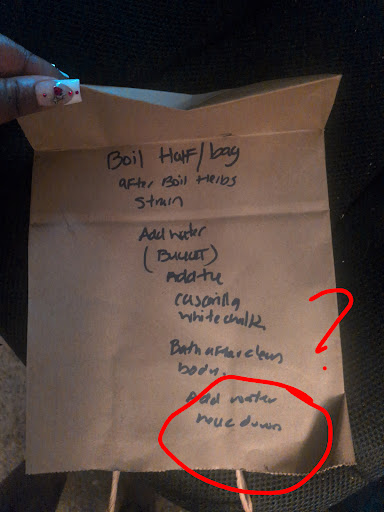 Boil Half/bag
after Boil Herbs
Strain
Add water
(BUCKET)
Add the
cascarilla
white chalk
Bath after clean
body.
Add water
down
?